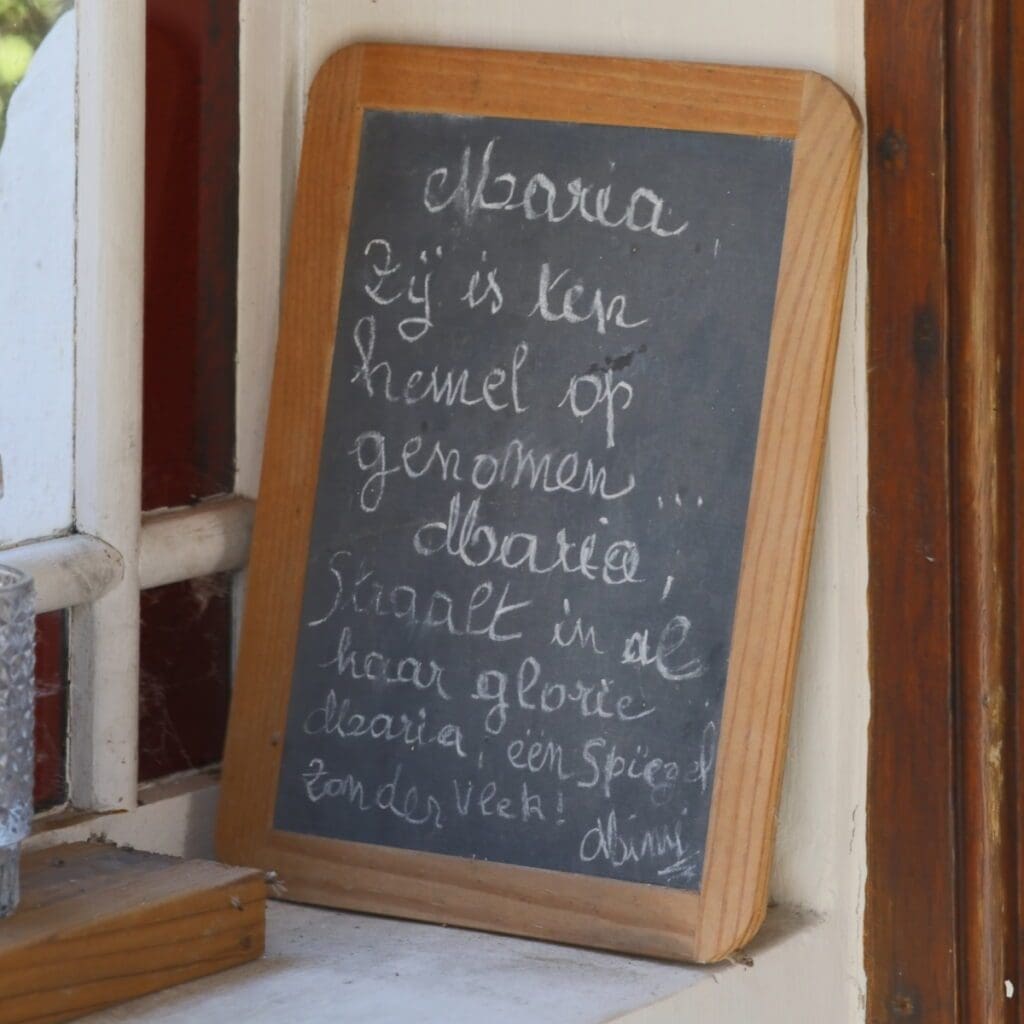 Maria,
Zij is ten
hemel op
genomen ...
Maria,
Straalt in al
haar glorie
Maria, één Spiegel
Zonder Vlek!